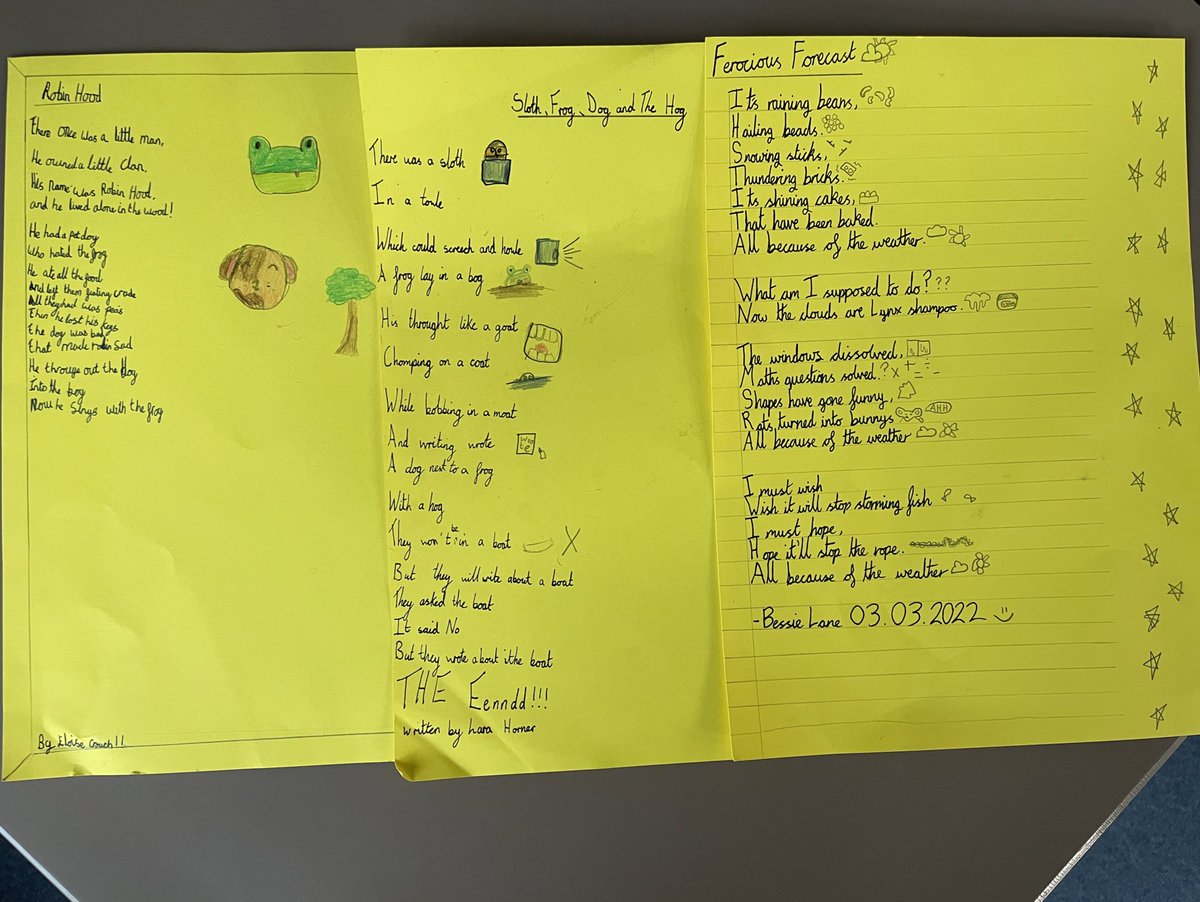 Robin Hood
There once was a little man,
He owned a little clan.
His name was Robin Hood,
and he lived alone in the wood!
He had a pet dog
Who hated the frog
He ate all the food
And left them feeling
All they had was peas
Then he lost his
the dog was bad
that made robin sad
He out the dog
Into the bog
Now he Sings with the frog
By Eloise Crouch!!
Sloth, Frog, Dog and The Hog
There was a sloth
In a
Which could screach and
A frog lay in a bog
His throught like a goat
Chomping on a coat
While bobbing in a moat
And writing wrote
A dog next to a frog
With a hog
They won't be in a boat
But they will write about a boat
They asked the boat
It said No
But they wrote about the boat
THE Eenndd!!!
written by Lara Horner
wrote
Ferocious Forecast
It's raining beans,
Hailing beads.
Snowing sticks,
Thundering bricks.
Its shining cakes,
That have been baked.
All because of the weather.
What am I supposed to do???
Now the clouds are Lynx shampoo.
The windows dissolved,
Maths questions solved.?
Shapes have gone funny,
Rats, turned into bunnys
AHH
All because of the weather
I must wish
Wish it will stop storming fish
I must hope,
Hope it'll stop the rope.
All because of the weather
-Bessie Lane 03.03.2022